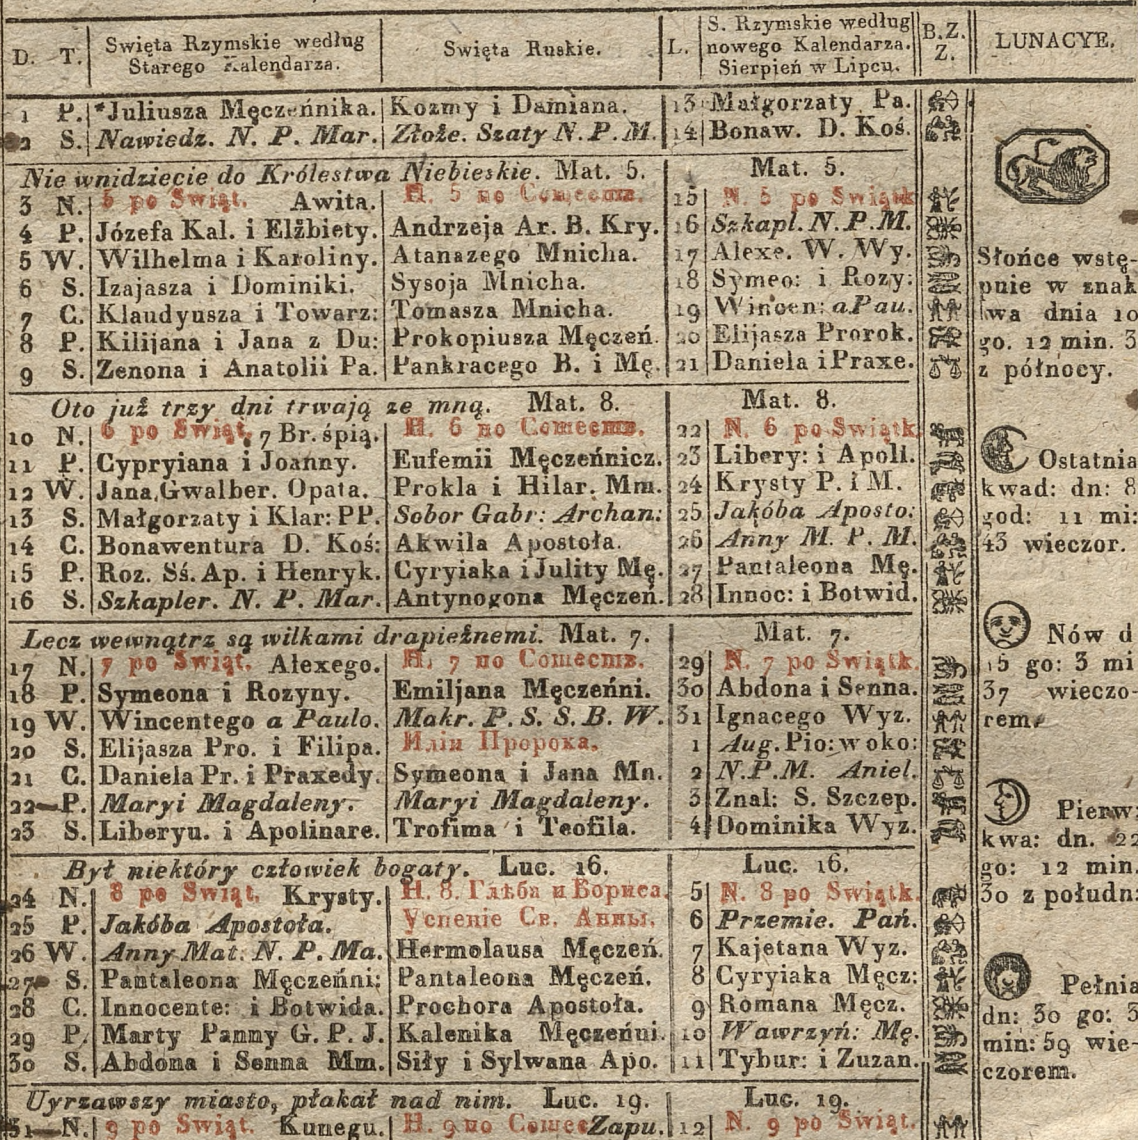 D. T. Swięta Rzymskie według Starego Kalendarza. Swięta Ruskie. L. S. Rzymskie według nowego Kalendarza. Sierpień w Lipcu. B.Z. Z. LUNACYE.
1 P. *Juliusza Męczeńnika. Kozmy i Damiana. 13 Małgorzaty Pa.
2 S. Nawiedz. N. P. Mar. Złoże. Szaty N. P. M. 14 Bonaw. D. Koś.
Nie wnidziecie do Królestwa Niebieskie. Mat. 5. Mat. 5.
3 N. 5 po Swiąt. Awita. Н. 5 по Сошеств. 15 N. 5 po Swiątk
4 P. Józefa Kal. i Elżbiety. Andrzeja Ar. B. Kry. 16 Szkapl. N. P. M.
5 W. Wilhelma i Karoliny. Atanazego Mnicha. 17 Alexe. W. Wy.
6 S. Izajasza i Dominiki. Sysoja Mnicha. 18 Symeo: i Rozy:
7 C. Klaudyusza i Towarz: Tomasza Mnicha. 19 Wincen: a Pau.
8 P. Kilijana i Jana z Du: Prokopiusza Męczeń. 20 Elijasza Prorok.
9 S. Zenona i Anatolii Pa. Pankracego B. i Mę. 21 Daniela i Praxe.
Oto już trzy dni trwają ze mną. Mat. 8. Mat. 8.
10 N. 6 po Swiąt. 7 Br. śpią. Н. 6 по Сошеств. 22 N. 6 po Swiątk
11 P. Cypryiana i Joanny. Eufemii Męczeńnicz. 23 Libery: i Apoli.
12 W. Jana Gwalber. Opata. Prokla i Hilar. Mm. 24 Krysty P. i M.
13 S. Małgorzaty i Klar: PP. Sobor Gabr: Archan: 25 Jakóba Aposto:
14 C. Bonawentura D. Koś: Akwila Apostoła. 26 Anny M. P. M.
15 P. Roz. Sś. Ap. i Henryk. Cyryiaka i Julity Mę. 27 Pantaleona Mę.
16 S. Szkapler. N. P. Mar. Antynogona Męczeń. 28 Innoc: i Botwid.
Lecz wewnątrz są wilkami drapieżnemi. Mat. 7. Mat. 7.
17 N. 7 po Swiąt. Alexego. Н. 7 по Сошеств. 29 N. 7 po Swiątk.
18 P. Symeona i Rozyny. Emiljana Męczeńni. 30 Abdona i Senna.
19 W. Wincentego a Paulo. Makr. P. S. S. B. W. 31 Ignacego Wyz.
20 S. Elijasza Pro. i Filipa. Иліи Пророка. 1 Aug. Pio: w oko:
21 C. Daniela Pr. i Praxedy. Symeona i Jana Mn. 2 N.P.M. Aniel.
22 P. Maryi Magdaleny. Maryi Magdaleny. 3 Znal: S. Szczep.
23 S. Liberyu. i Apolinare. Trofima i Teofila. 4 Dominika Wyz.
Był niektóry człowiek bogaty. Luc. 16. Luc. 16.
24 N. 8 po Swiąt. Krysty. Н. 8. Глѣба и Бориса. 5 N. 8 po Swiątk
25 P. Jakóba Apostoła. Успеніе Св. Анны. 6 Przemie. Pań.
26 W. Anny Mat. N. P. Ma. Hermolausa Męczeń. 7 Kajetana Wyz.
27 S. Pantaleona Męczeńni: Pantaleona Męczeń. 8 Cyryiaka Męcz:
28 C. Innocente: i Botwida. Prochora Apostoła. 9 Romana Męcz.
29 P. Marty Panny G. P. J. Kalenika Męczeńni. 10 Wawrzyń: Mę.
30 S. Abdona i Senna Mm. Siły i Sylwana Apo. 11 Tybur: i Zuzan.
Uyrzawszy miasto, płakał nad nim. Luc. 19. Luc. 19.
31 N. 9 po Swiąt. Kunegu. Н. 9 по Сошес Zapu. 12 N. 9 po Swiąt.
Słońce wstę-
pnie w znak
lwa dnia 10
go. 12 min. 3
z północy.
Ostatnia
kwad: dn: 8
god: 11 mi:
43 wieczor.
Nów d
15 go: 3 mi
37 wieczo-
rem.
Pierw:
kwa: dn. 22
go: 12 min.
30 z połudn:
Pełnia
dn: 30 go: 3
min: 59 wie-
czorem.